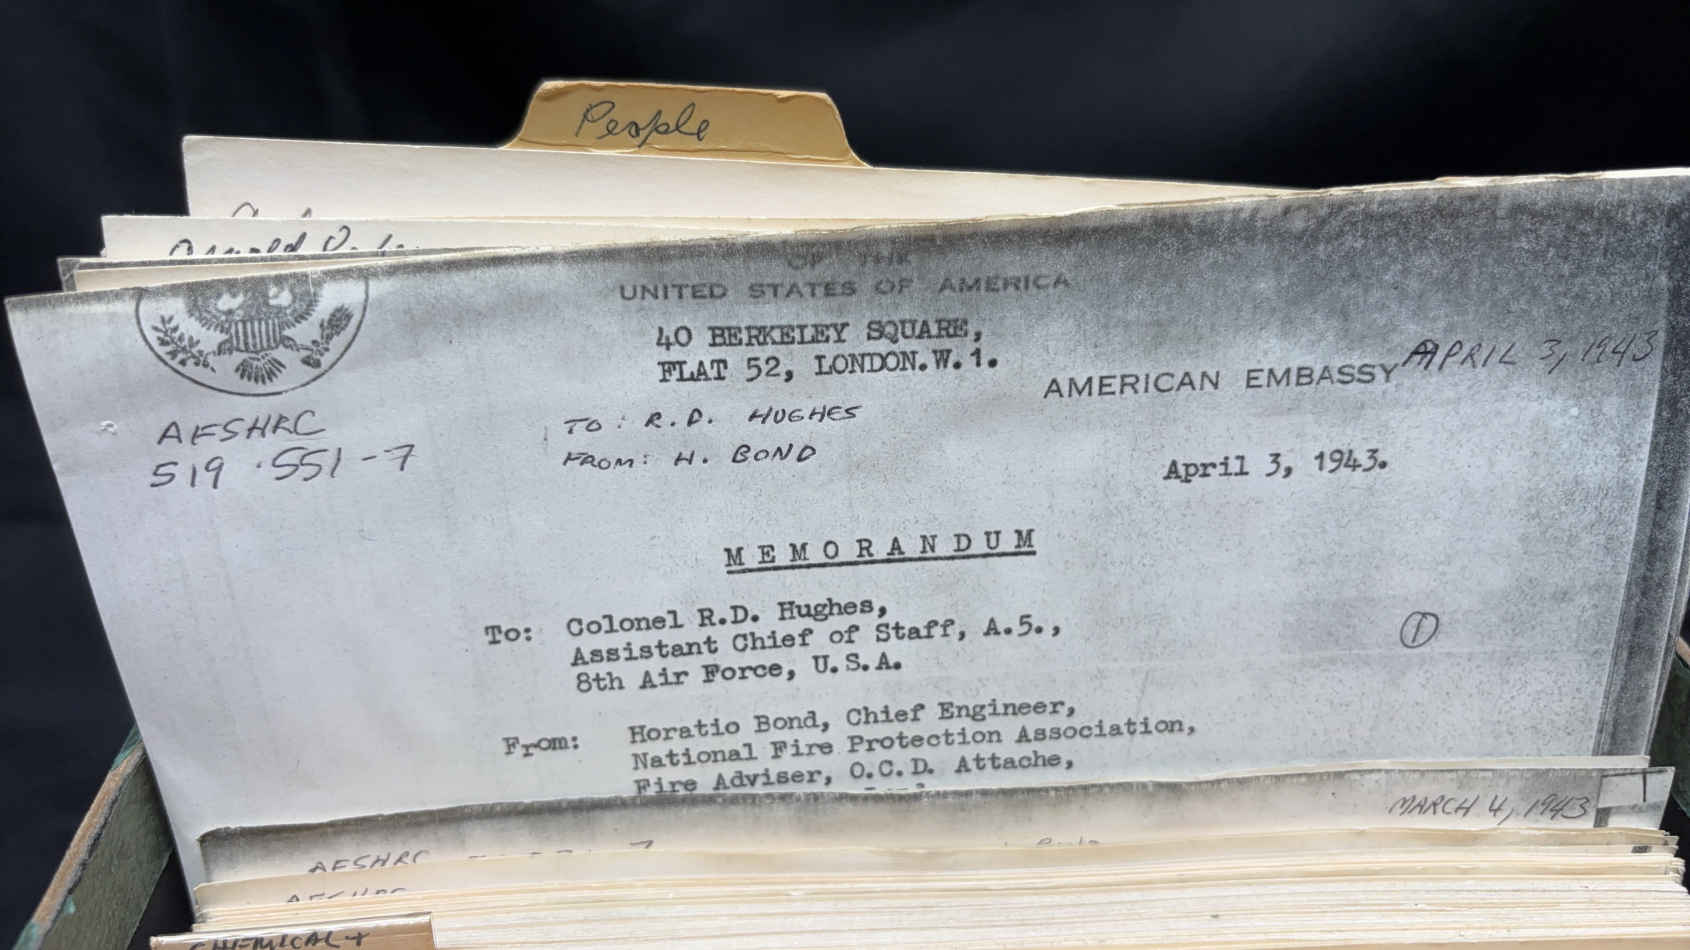 People
OF THE
UNITED STATES OF AMERICA
40 BERKELEY SQUARE,
FLAT 52, LONDON.W.1.
AMERICAN EMBASSY
APRIL 3, 1943
AFSHRC
519.551-7
TO: R.D. HUGHES
FROM: H. BOND
April 3, 1943.
MEMORANDUM
1
To: Colonel R.D. Hughes,
Assistant Chief of Staff, A.5.,
8th Air Force, U.S.A.
From: Horatio Bond, Chief Engineer,
National Fire Protection Association,
Fire Adviser, O.C.D. Attache,
MARCH 4, 1943
AFSHRC
AFSHRC
CHEMICAL +